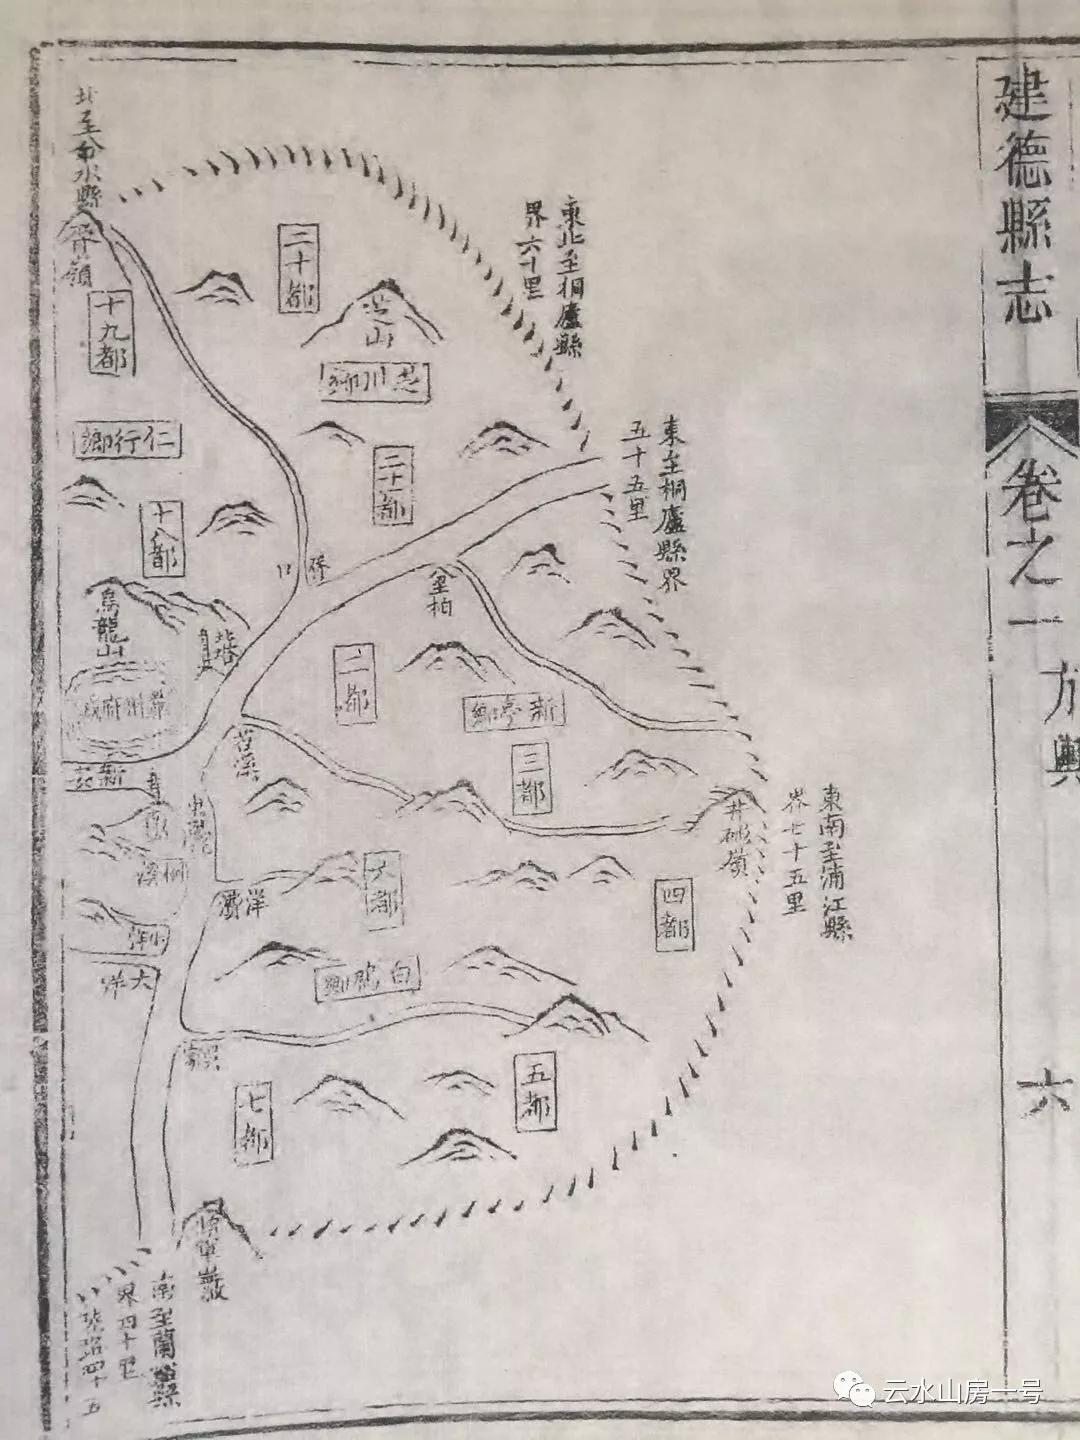 建德縣志
卷之一
方輿
六
東北至桐廬縣
界六十里
東至桐廬縣界
五十五里
東南至浦江縣
界七十五里
北至分水縣
二十都
芝山
十九都
仁行鄉
十八都
烏龍山
北塔
嚴州府城
胥
口
里柏
二都
新亭鄉
三都
苔溪
井硎嶺
四都
六都
洋溪
白鳩鄉
小洋
大洋
五都
七都
將軍巖
南至蘭谿縣
界四十里
云水山房一号